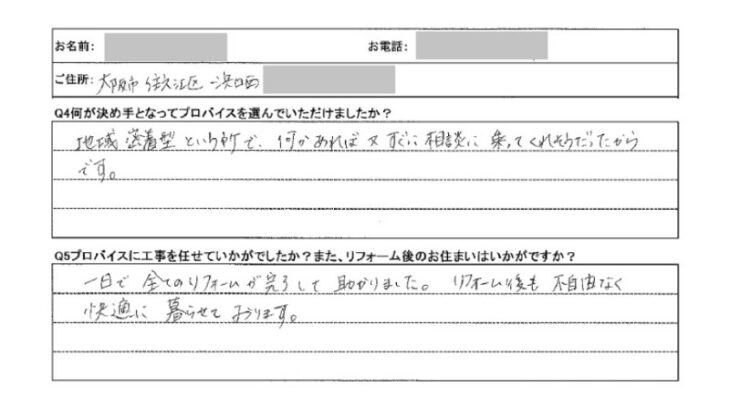 お名前: お電話:
ご住所: 大阪市住之江区浜口西
Q4何が決め手となってプロバイスを選んでいただけましたか？
地域密着型という所で、何かあれば又すぐに相談に乗ってくれそうだったから
です。
Q5プロバイスに工事を任せていかがでしたか？また、リフォーム後のお住まいはいかがですか？
一日で全てのリフォームが完了して助かりました。リフォーム後も不自由なく
快適に暮らせております。